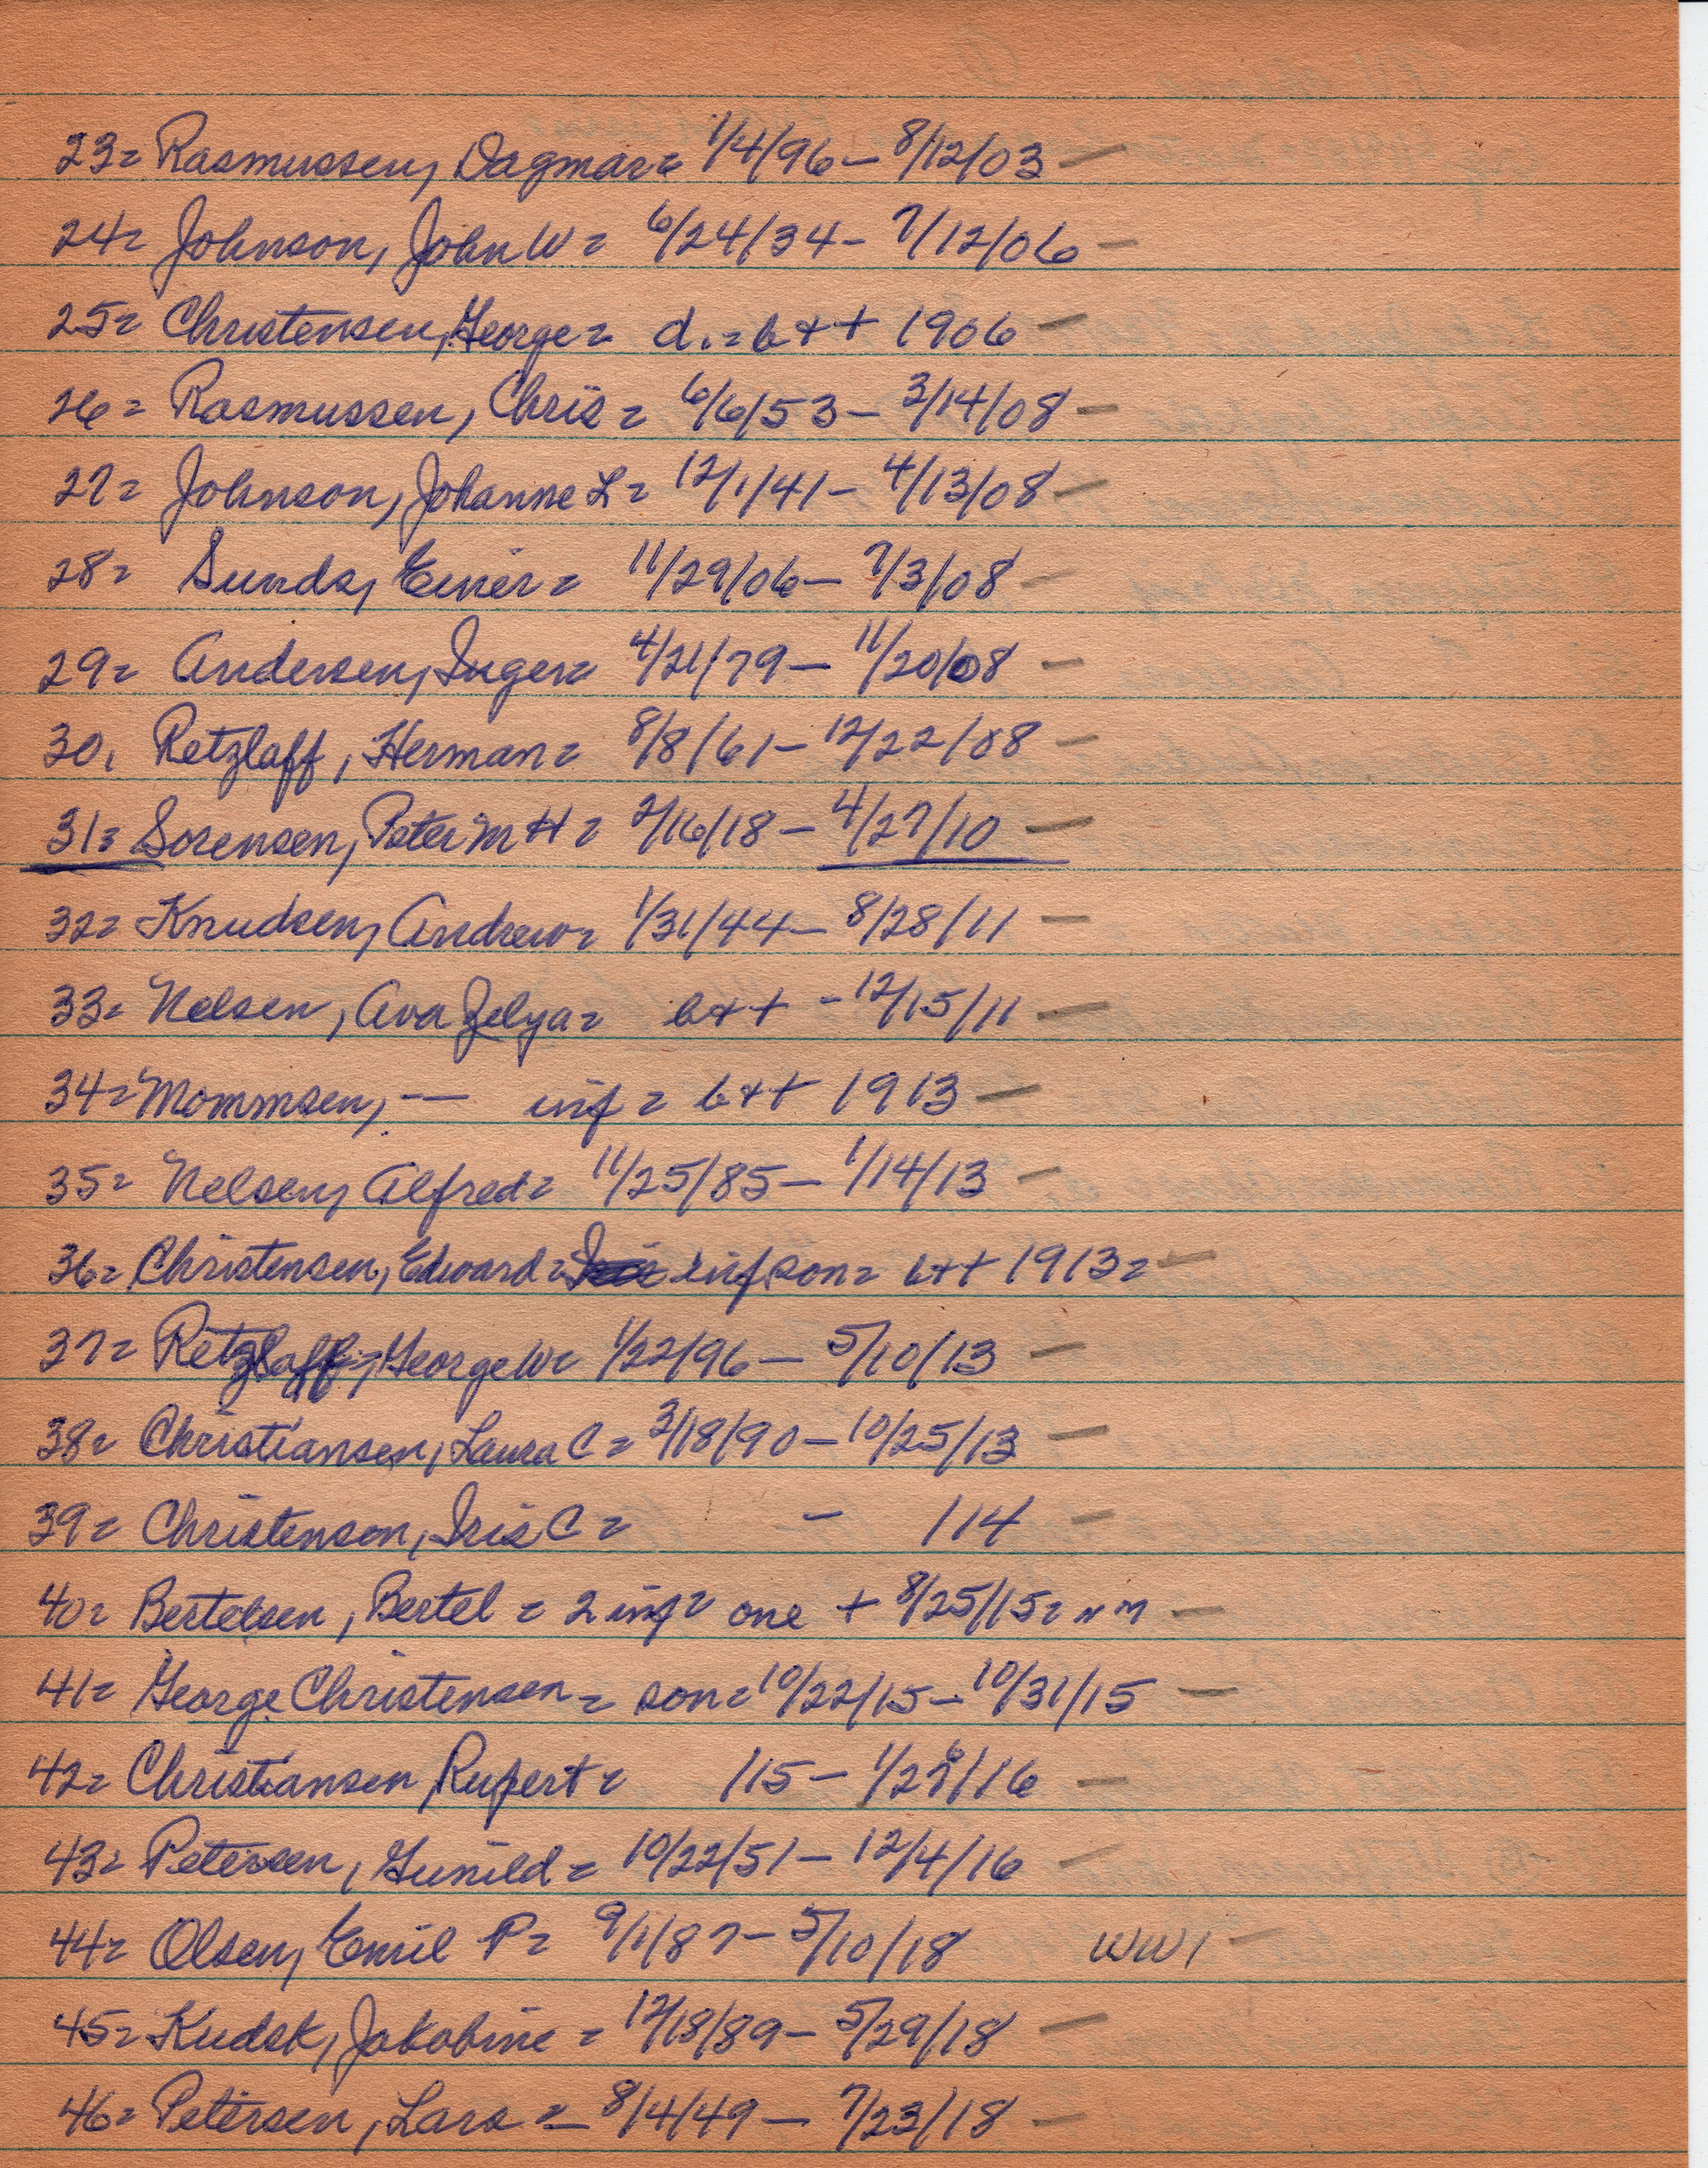 23= Rasmussen, Dagmar= 1/4/96 - 8/12/03 -
24= Johnson, John W= 6/24/34 - 7/12/06 -
25= Christensen, George= d.=b++ 1906 -
26= Rasmussen, Chris= 6/6/53 - 3/14/08 -
27= Johnson, Johanne L= 12/1/41 - 4/13/08 -
28= Sunds, Einer= 11/29/06 - 7/3/08 -
29= Andersen, Inger= 4/21/79 - 11/20/08 -
30, Retzlaff, Herman= 8/8/61 - 12/22/08 -
31= Sorensen, Peter M H= 2/16/18 - 4/27/10 -
32= Knudsen, Andrew= 1/31/44 - 8/28/11 -
33= Nelsen, Ava Zelya= b++ - 12/15/11 -
34= Mommsen, -- inf= b++ 1913 -
35= Nelsen, Alfred= 11/25/85 - 1/14/13 -
36= Christensen, Edward= inf son= b++ 1913= -
37= Retzlaff, George W= 1/22/96 - 5/10/13 -
38= Christiansen, Laura C= 3/18/90 - 10/25/13 -
39= Christenson, Iris C= - /14 -
40= Bertelsen, Bertel= 2 inf= one + 8/25/15= nm -
41= George Christensen= son= 10/22/15 - 10/31/15 -
42= Christiansen, Rupert= /15 - /16 -
43= Petersen, Gunild= 10/22/51 - 12/4/16 -
44= Olsen, Emil P= 9/1/87 - 5/10/18 WW1 -
45= Kudsk, Jakobine= 12/18/89 - 5/29/18 -
46= Petersen, Lars= - 8/4/49 - 7/23/18 -